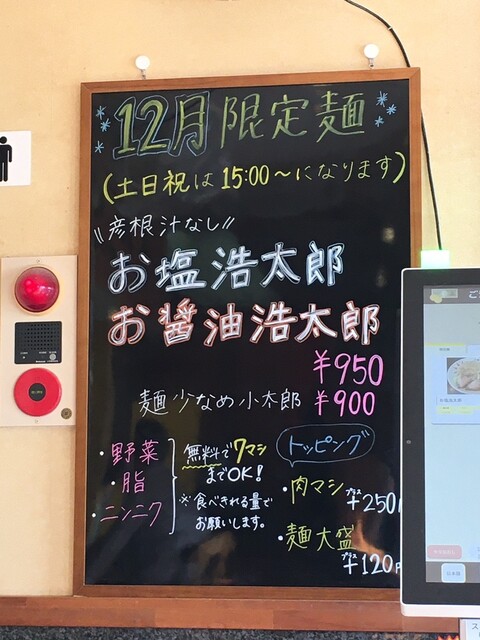 12月限定麺
(土日祝は15:00〜になります)
\\彦根汁なし//
お塩浩太郎
お醤油浩太郎
¥950
麺少なめ小太郎 ¥900
・野菜
・脂
・ニンニク
無料で7マシ
までOK!
※食べきれる量で
お願いします。
トッピング
・肉マシ プラス¥250
・麺大盛 プラス¥120
日本語